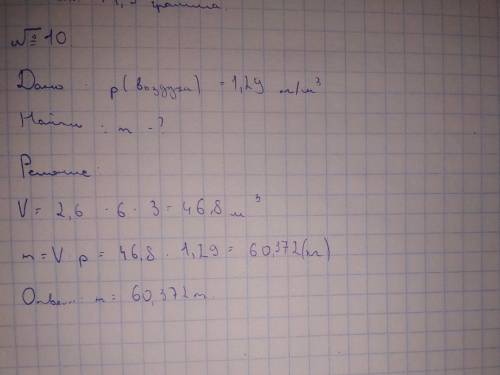 грамма.
№ 10.
Дано: p(воздуха) = 1,29 кг/м³
Найти: m - ?
Решение:
V = 2,6 · 6 · 3 = 46,8 м³
m = V p = 46,8 · 1,29 = 60,372(кг)
Ответ: m = 60,372